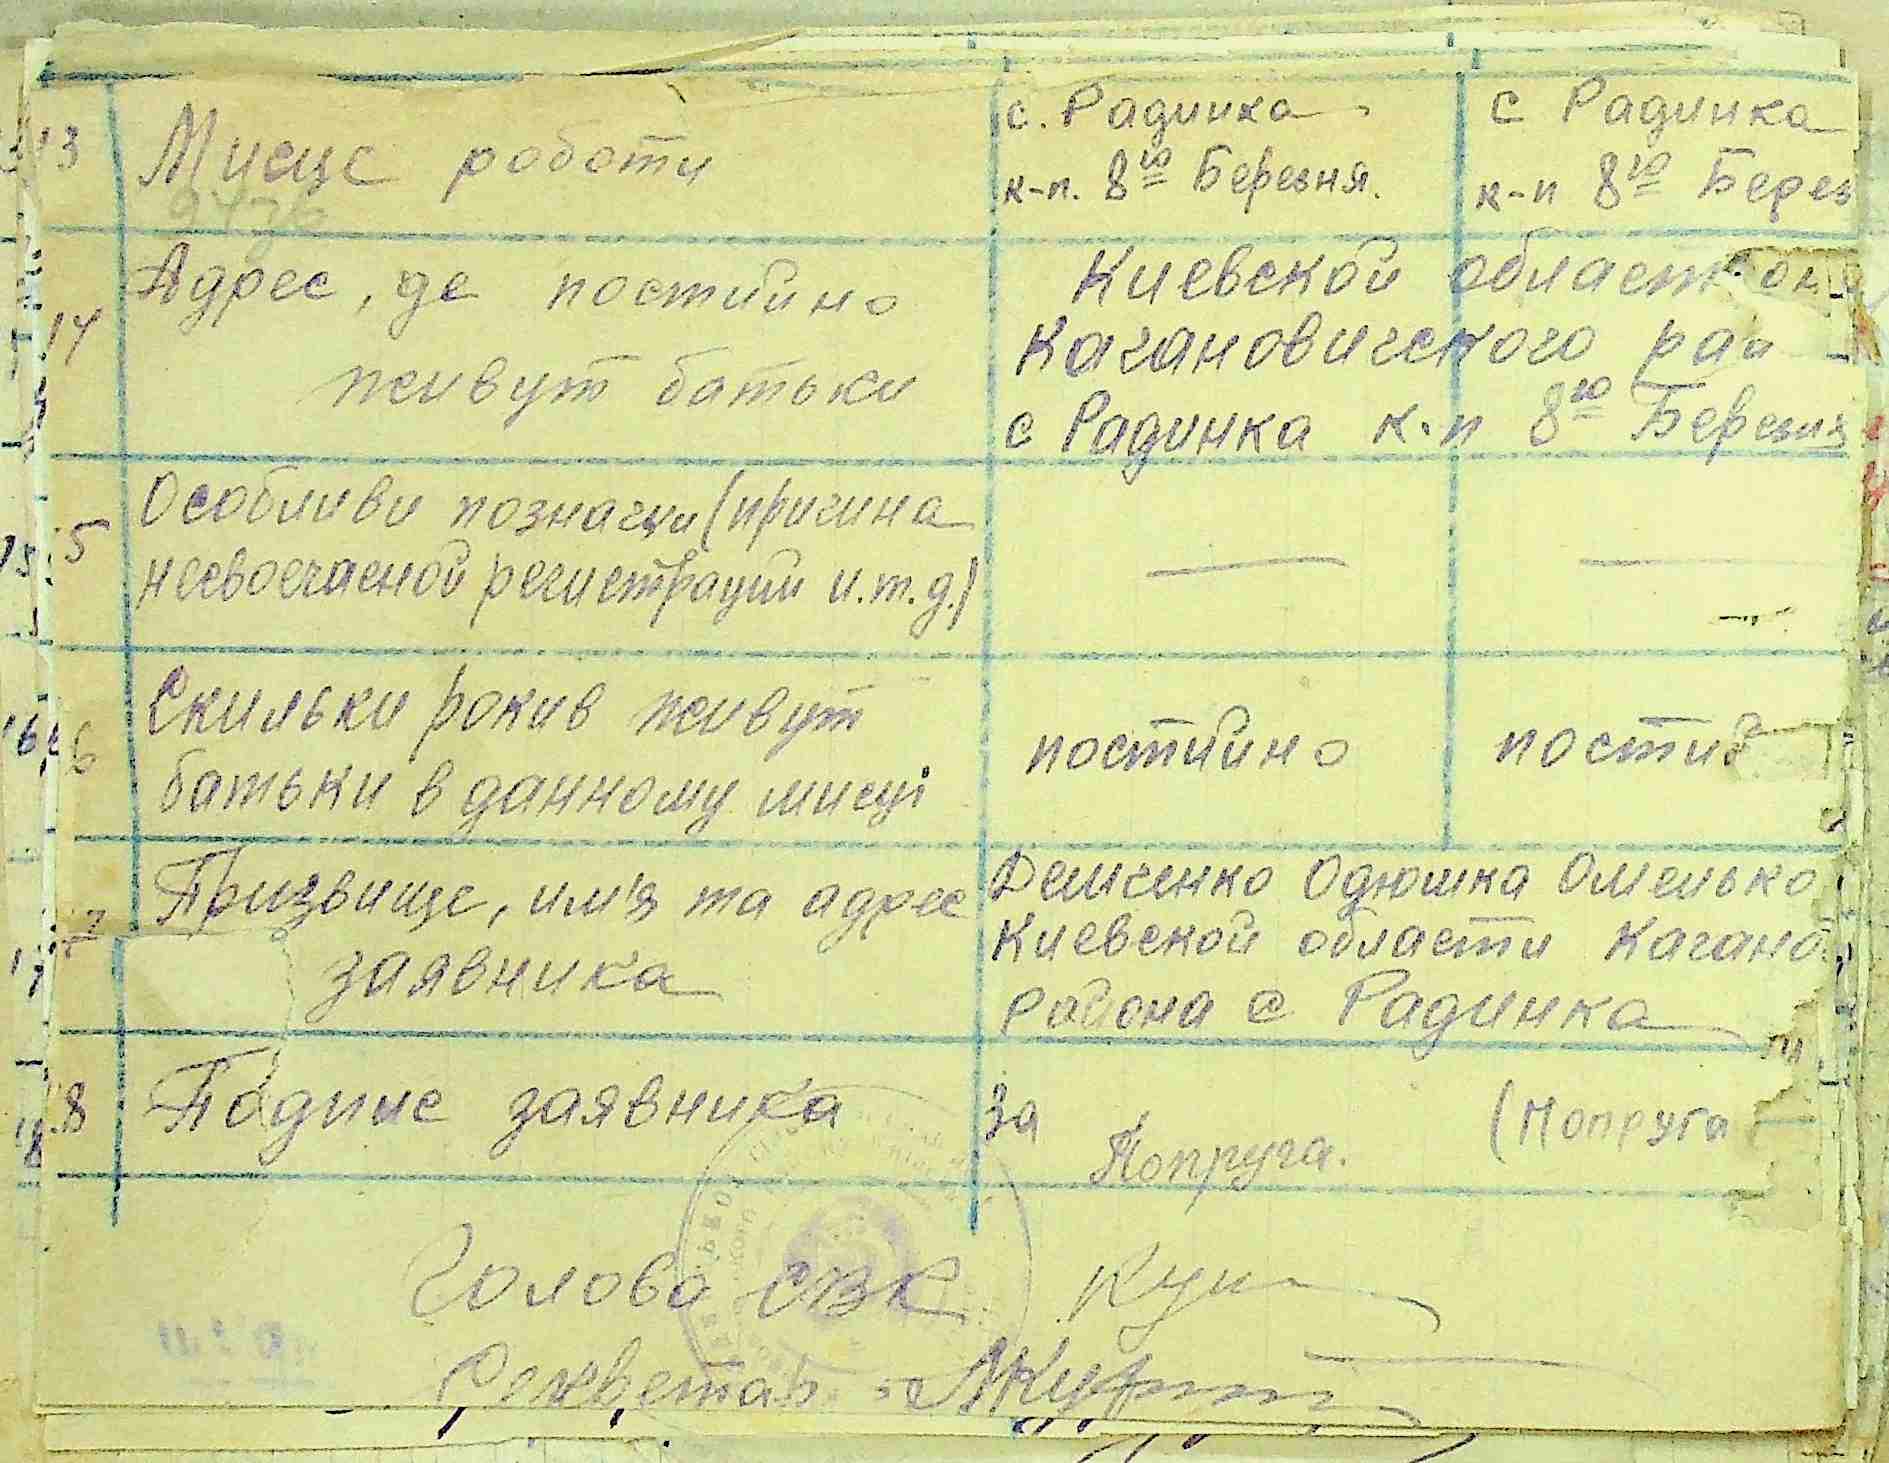 13 Мисце роботи
с. Радинка
к-п. 8го Березня.
с Радинка
к-п 8го Берез
14 Адрес, де постийно
живут батьки
Киевской област
Кагановичского рай
с Радинка к-п 8го Березня
15 Особливи позначки (причина
несвоечасной регистрации и.т.д.)
— —
16 Скильки рокив живут
батьки в данному мисці
постийно
постий
17 Призвище, имъя та адрес
заявника
Демченко Одюшка Омелько
Киевской области Кагано
района с Радинка
18 Подпис заявника
За Попруга.
(Попруга
Голова СВК
Секретар